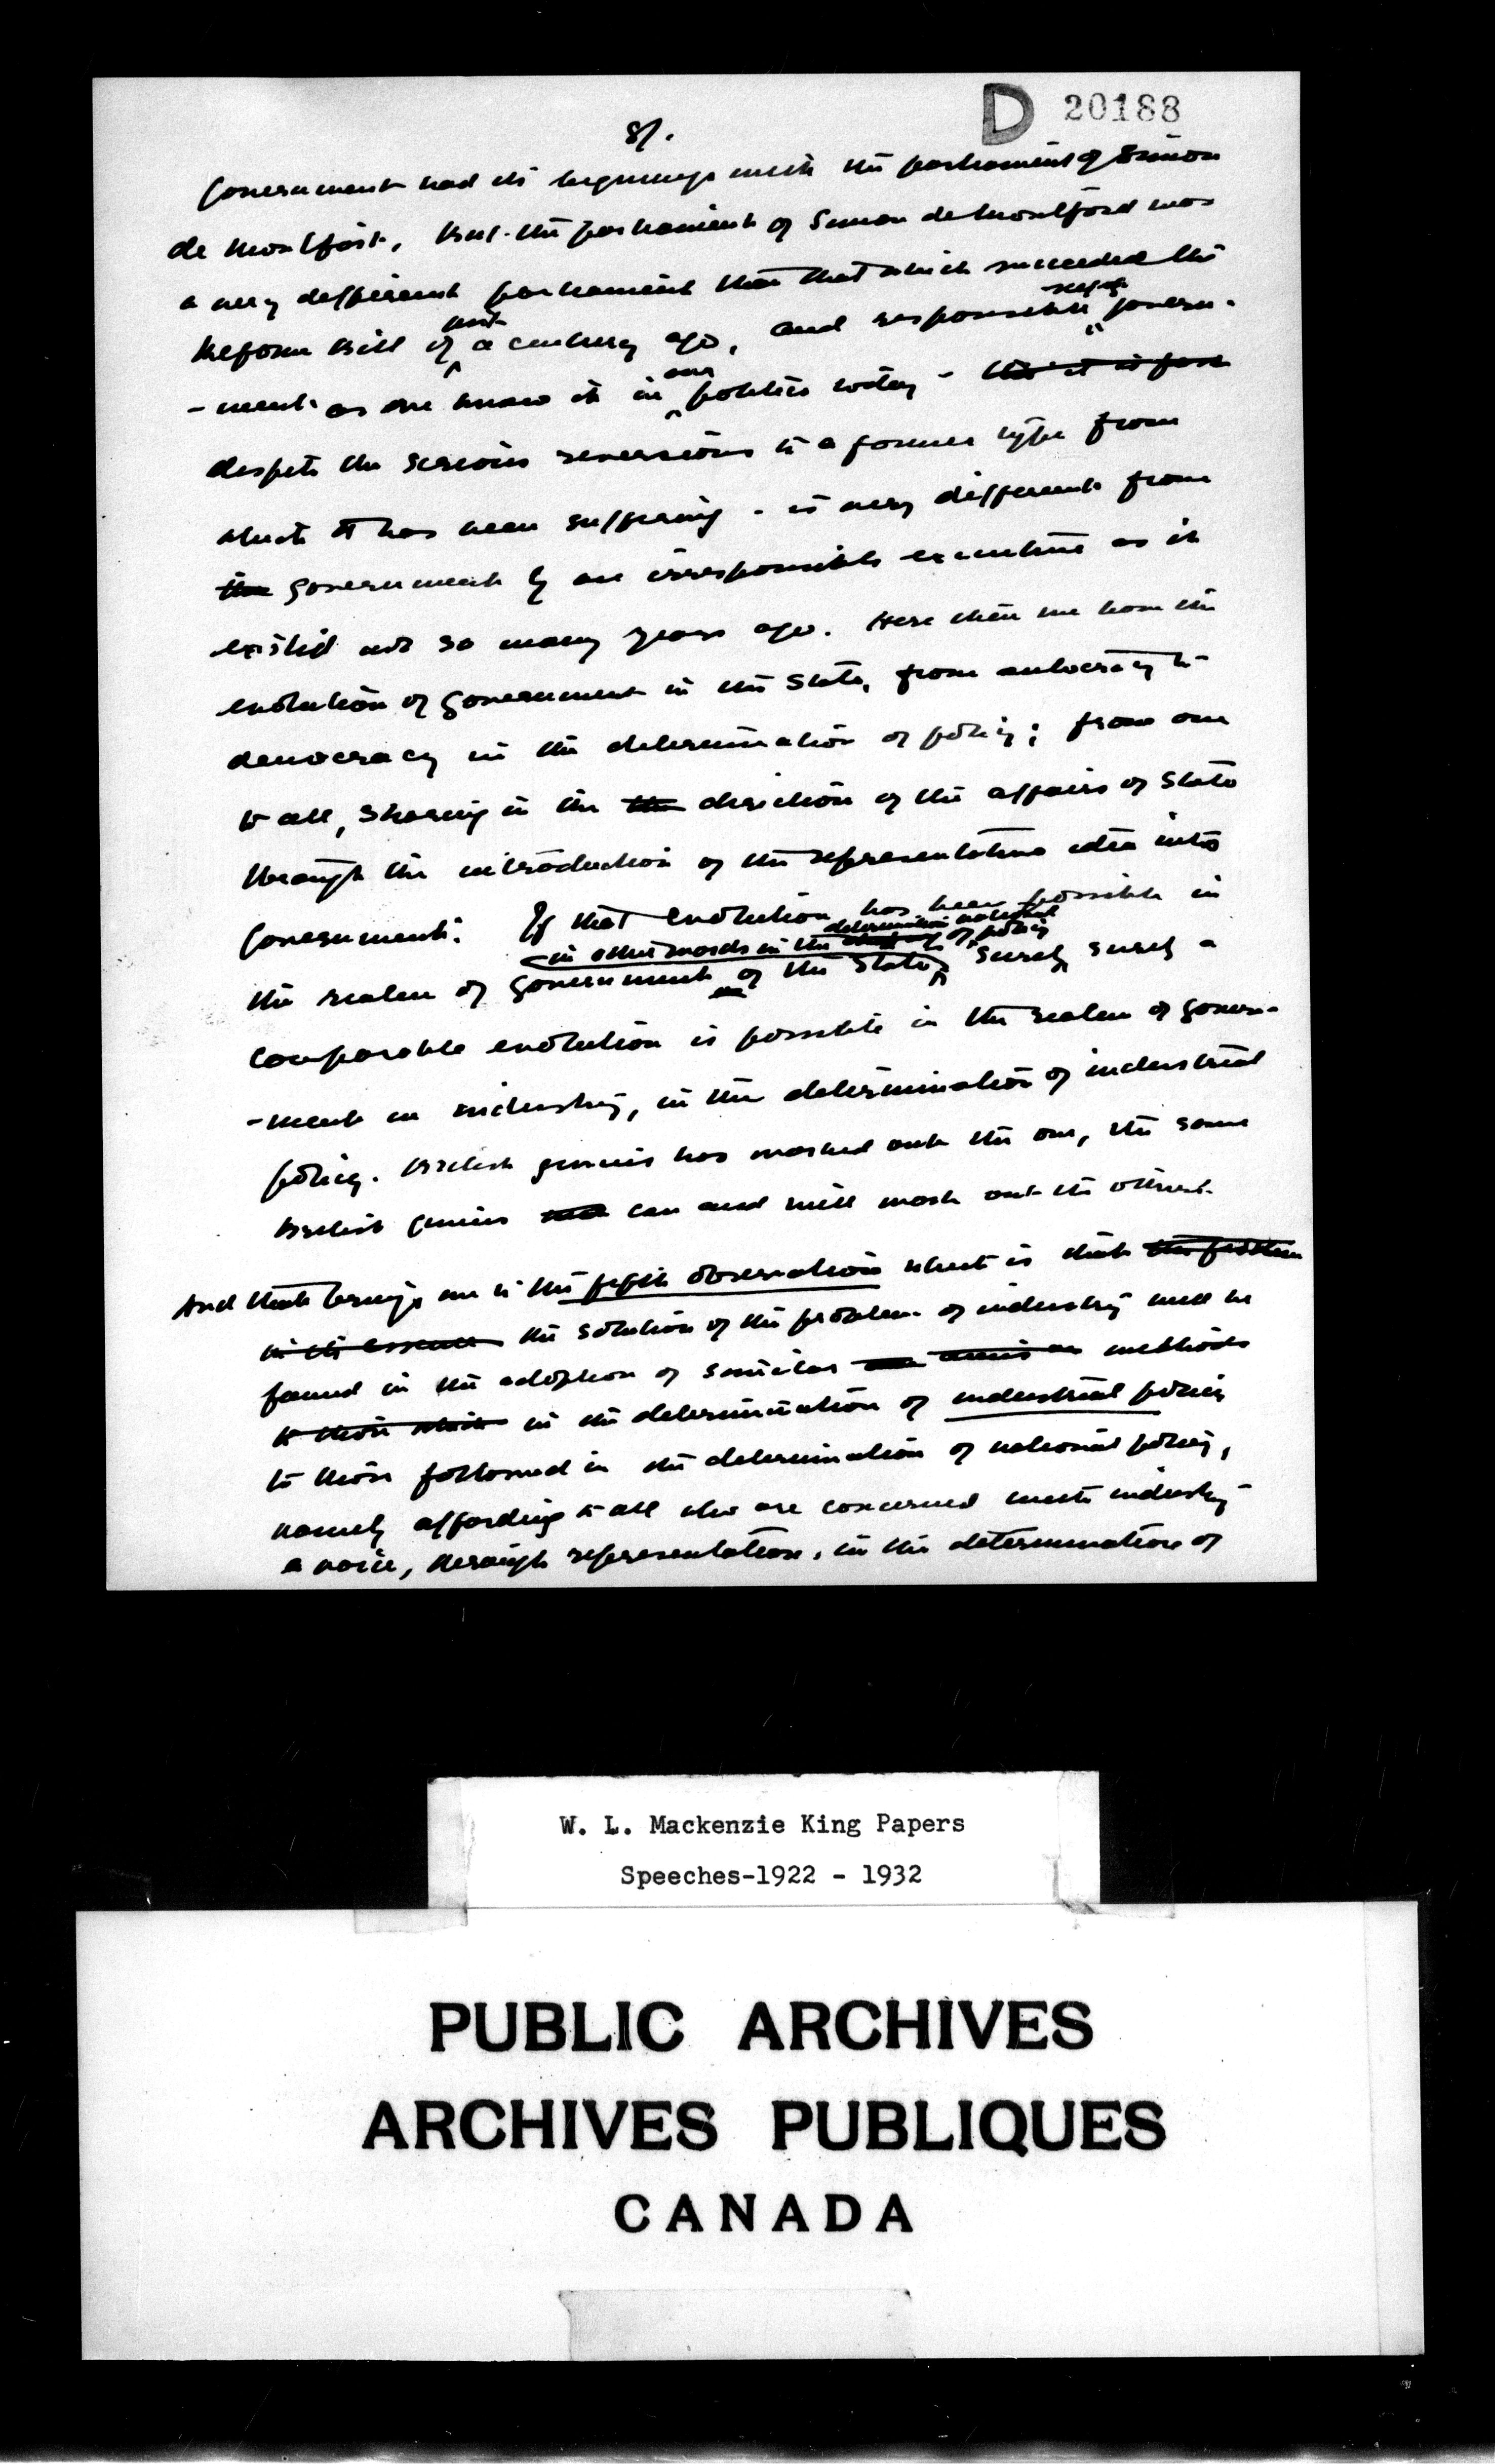 8/.
D 20188
Government had its beginnings with the parliament of Simon
de Montfort. But the parliament of Simon de Montford was
a very different parliament than that which succeeded the
Reform Bill of just a century ago, and responsible self govern-
-ment as we know it in our politics today -
despite the serious reversions to a former type from
which it has been suffering - is very different from
the government by an irresponsible executive as it
existed not so many years ago. Here then we have the
evolution of government in the State, from autocracy to
democracy in the determination of policy; from one
to all, sharing in the the direction of the affairs of State
through the introduction of the representative idea into
Government. If that evolution has been possible in
in other words in the determination of national policy
the realm of government of the State, surely surely a
comparable evolution is possible in the realm of govern-
-ment in industry, in the determination of industrial
policy. British genius has worked out the one, the same
British genius can and will work out the other.
And that brings me to the fifth observation which is that the problem
in its essence the solution of the problem of industry will be
found in the adoption of similar methods
to those which in the determination of industrial policy
to those followed in the determination of national policy,
namely affording to all who are concerned with industry
a voice, through representation, in the determination of
W. L. Mackenzie King Papers
Speeches-1922 - 1932
PUBLIC ARCHIVES
ARCHIVES PUBLIQUES
CANADA